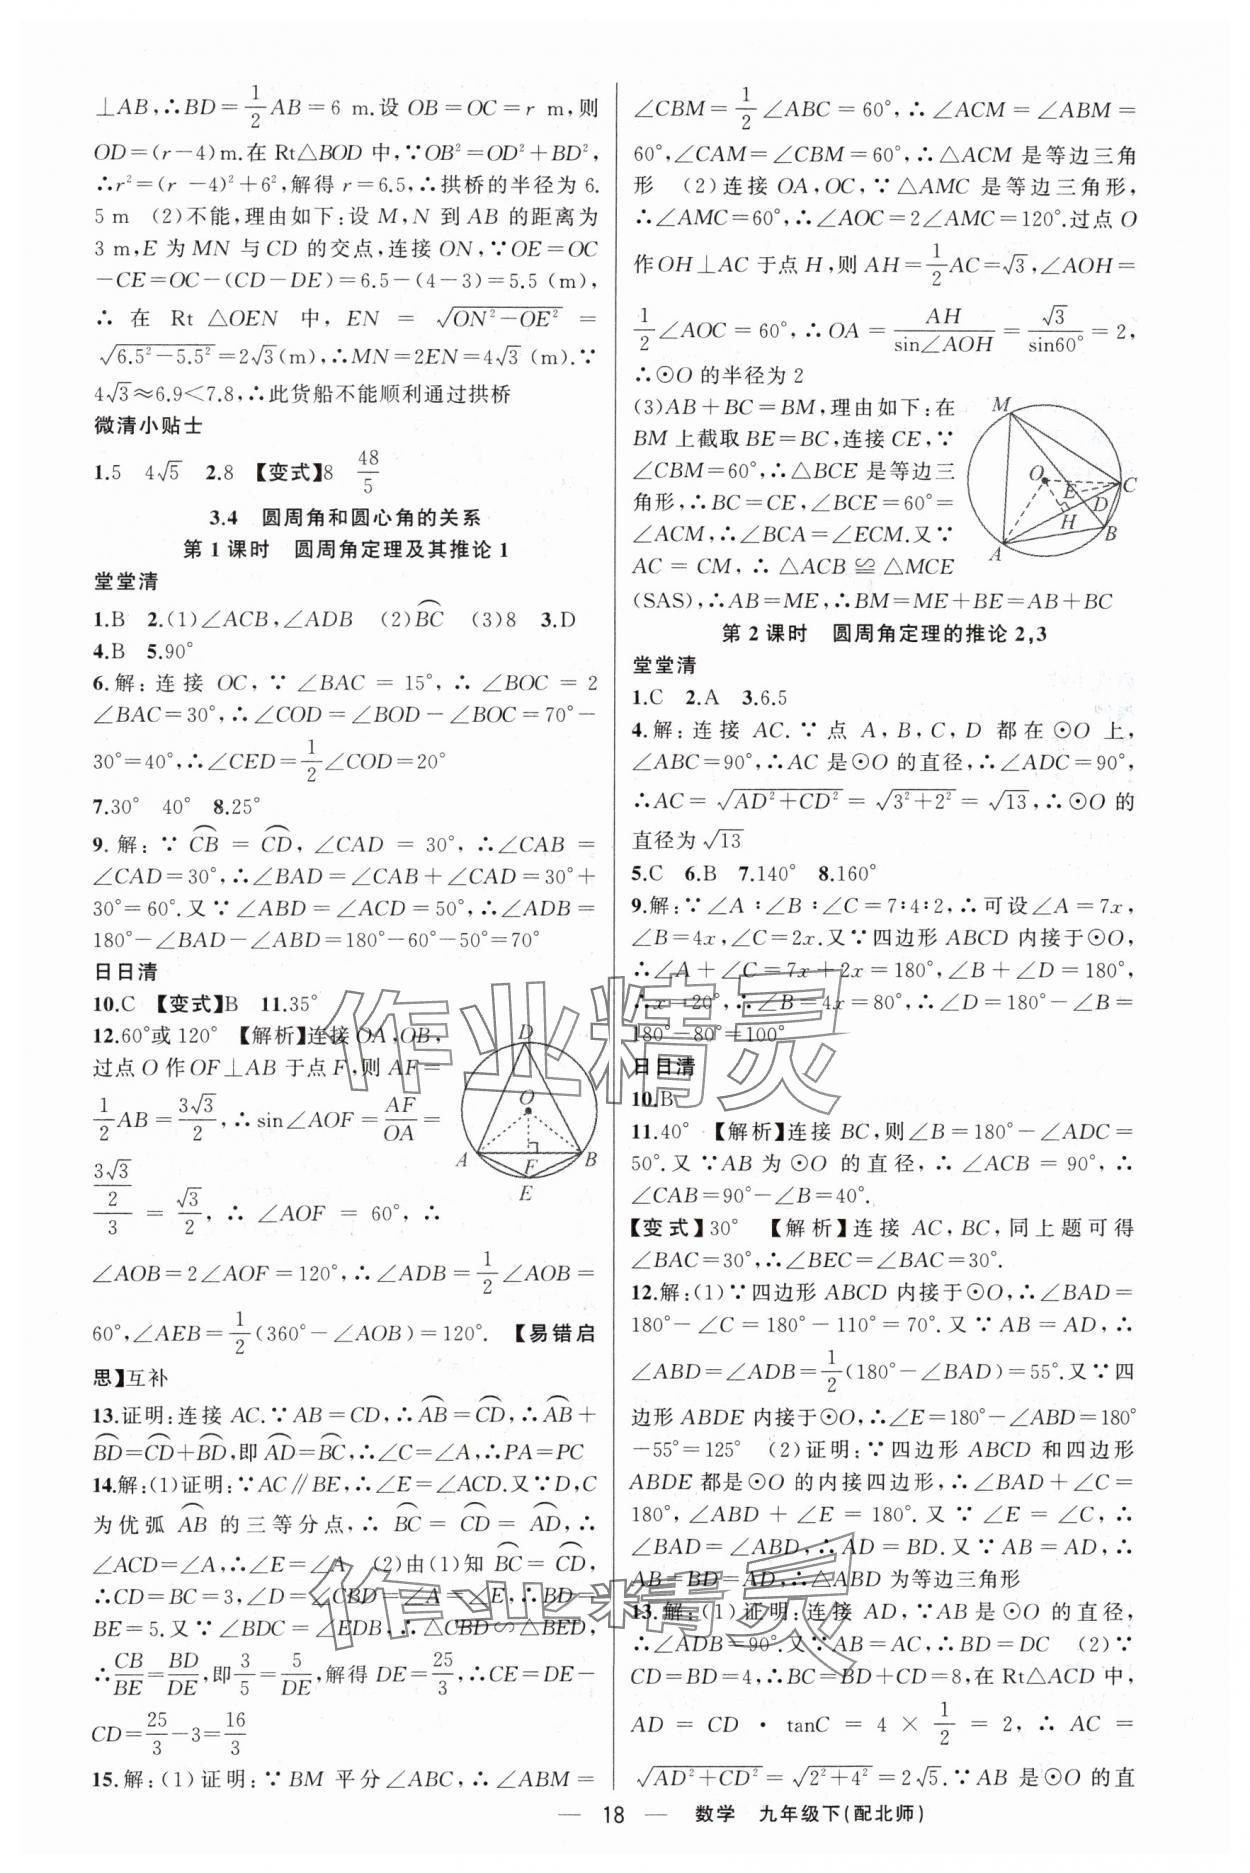 ⊥AB,∴BD=1/2AB=6 m.设 OB=OC=r m,则
OD=(r-4)m.在 Rt△BOD 中,∵OB²=OD²+BD²,
∴r²=(r-4)²+6²,解得 r=6.5,∴拱桥的半径为 6.
5 m (2)不能,理由如下:设 M,N 到 AB 的距离为
3 m,E 为 MN 与 CD 的交点,连接 ON,∵OE=OC
-CE=OC-(CD-DE)=6.5-(4-3)=5.5 (m),
∴ 在 Rt △OEN 中, EN = √(ON²-OE²) =
√(6.5²-5.5²)=2√3(m),∴MN=2EN=4√3 (m).∵
4√3≈6.9<7.8,∴此货船不能顺利通过拱桥
微清小贴士
1.5 4√5 2.8 【变式】8 48/5
3.4 圆周角和圆心角的关系
第 1 课时 圆周角定理及其推论 1
堂堂清
1.B 2.(1)∠ACB,∠ADB (2)BC⌒ (3)8 3.D
4.B 5.90°
6.解:连接 OC,∵ ∠BAC = 15°,∴ ∠BOC = 2
∠BAC=30°,∴∠COD=∠BOD-∠BOC=70°-
30°=40°,∴∠CED=1/2∠COD=20°
7.30° 40° 8.25°
9.解:∵ CB⌒ = CD⌒,∠CAD = 30°,∴∠CAB =
∠CAD=30°,∴∠BAD=∠CAB+∠CAD=30°+
30°=60°.又∵∠ABD=∠ACD=50°,∴∠ADB=
180°-∠BAD-∠ABD=180°-60°-50°=70°
日日清
10.C 【变式】B 11.35°
12.60°或 120° 【解析】连接 OA,OB,
过点 O 作 OF⊥AB 于点 F,则 AF=
1/2AB=3√3/2,∴sin∠AOF=AF/OA=
(3√3/2)/3 = √3/2, ∴ ∠AOF = 60°, ∴
∠AOB=2∠AOF=120°,∴∠ADB=1/2∠AOB=
60°,∠AEB=1/2(360°-∠AOB)=120°. 【易错启
思】互补
D
O
A
F
B
E
13.证明:连接 AC.∵AB=CD,∴AB⌒=CD⌒,∴AB⌒+
BD⌒=CD⌒+BD⌒,即AD⌒=BC⌒,∴∠C=∠A,∴PA=PC
14.解:(1)证明:∵AC∥BE,∴∠E=∠ACD.又∵D,C
为优弧 AB⌒ 的三等分点,∴ BC⌒ = CD⌒ = AD⌒,∴
∠ACD=∠A,∴∠E=∠A (2)由(1)知 BC⌒=CD⌒,
∴CD=BC=3,∠D=∠CBD=∠A=∠E,∴BD=
BE=5.又∵∠BDC=∠EDB,∴△CBD∽△BED,
∴CB/BE=BD/DE,即3/5=5/DE,解得 DE=25/3,∴CE=DE-
CD=25/3-3=16/3
15.解:(1)证明:∵BM 平分∠ABC,∴∠ABM=
∠CBM=1/2∠ABC=60°,∴∠ACM=∠ABM=
60°,∠CAM=∠CBM=60°,∴△ACM 是等边三角
形 (2)连接 OA,OC,∵△AMC 是等边三角形,
∴∠AMC=60°,∴∠AOC=2∠AMC=120°.过点 O
作OH⊥AC 于点 H,则 AH=1/2AC=√3,∠AOH=
1/2∠AOC=60°,∴OA=AH/sin∠AOH=√3/sin60°=2,
∴⊙O 的半径为 2
(3)AB+BC=BM,理由如下:在
BM 上截取 BE=BC,连接 CE,∵
∠CBM=60°,∴△BCE 是等边三
角形,∴BC=CE,∠BCE=60°=
∠ACM,∴∠BCA=∠ECM.又∵
AC = CM,∴ △ACB ≌ △MCE
(SAS),∴AB=ME,∴BM=ME+BE=AB+BC
M
O
E
C
D
H
B
A
第 2 课时 圆周角定理的推论 2,3
堂堂清
1.C 2.A 3.6.5
4.解:连接 AC.∵点 A,B,C,D 都在⊙O 上,
∠ABC=90°,∴AC 是⊙O 的直径,∴∠ADC=90°,
∴AC=√(AD²+CD²)=√(3²+2²)=√13,∴⊙O 的
直径为√13
5.C 6.B 7.140° 8.160°
9.解:∵∠A∶∠B∶∠C=7∶4∶2,∴可设∠A=7x,
∠B=4x,∠C=2x.又∵四边形 ABCD 内接于⊙O,
∴∠A+∠C=7x+2x=180°,∠B+∠D=180°,
∴x=20°,∴∠B=4x=80°,∴∠D=180°-∠B=
180°-80°=100°
日日清
10.B
11.40° 【解析】连接 BC,则∠B=180°-∠ADC=
50°.又∵AB 为⊙O 的直径,∴∠ACB=90°,∴
∠CAB=90°-∠B=40°.
【变式】30° 【解析】连接 AC,BC,同上题可得
∠BAC=30°,∴∠BEC=∠BAC=30°.
12.解:(1)∵四边形 ABCD 内接于⊙O,∴∠BAD=
180°-∠C=180°-110°=70°.又∵AB=AD,∴
∠ABD=∠ADB=1/2(180°-∠BAD)=55°.又∵四
边形 ABDE 内接于⊙O,∴∠E=180°-∠ABD=180°
-55°=125° (2)证明:∵四边形 ABCD 和四边形
ABDE 都是⊙O 的内接四边形,∴∠BAD+∠C=
180°,∠ABD+∠E=180°.又∵∠E=∠C,∴
∠BAD=∠ABD,∴AD=BD.又∵AB=AD,∴
AB=BD=AD,∴△ABD 为等边三角形
13.解:(1)证明:连接 AD,∵AB 是⊙O 的直径,
∴∠ADB=90°.又∵AB=AC,∴BD=DC (2)∵
CD=BD=4,∴BC=BD+CD=8,在 Rt△ACD 中,
AD = CD · tanC = 4 × 1/2 = 2,∴ AC =
√(AD²+CD²)=√(2²+4²)=2√5.∵AB 是⊙O 的直
— 18 — 数学 九年级下(配北师)
作业精灵
作业精灵